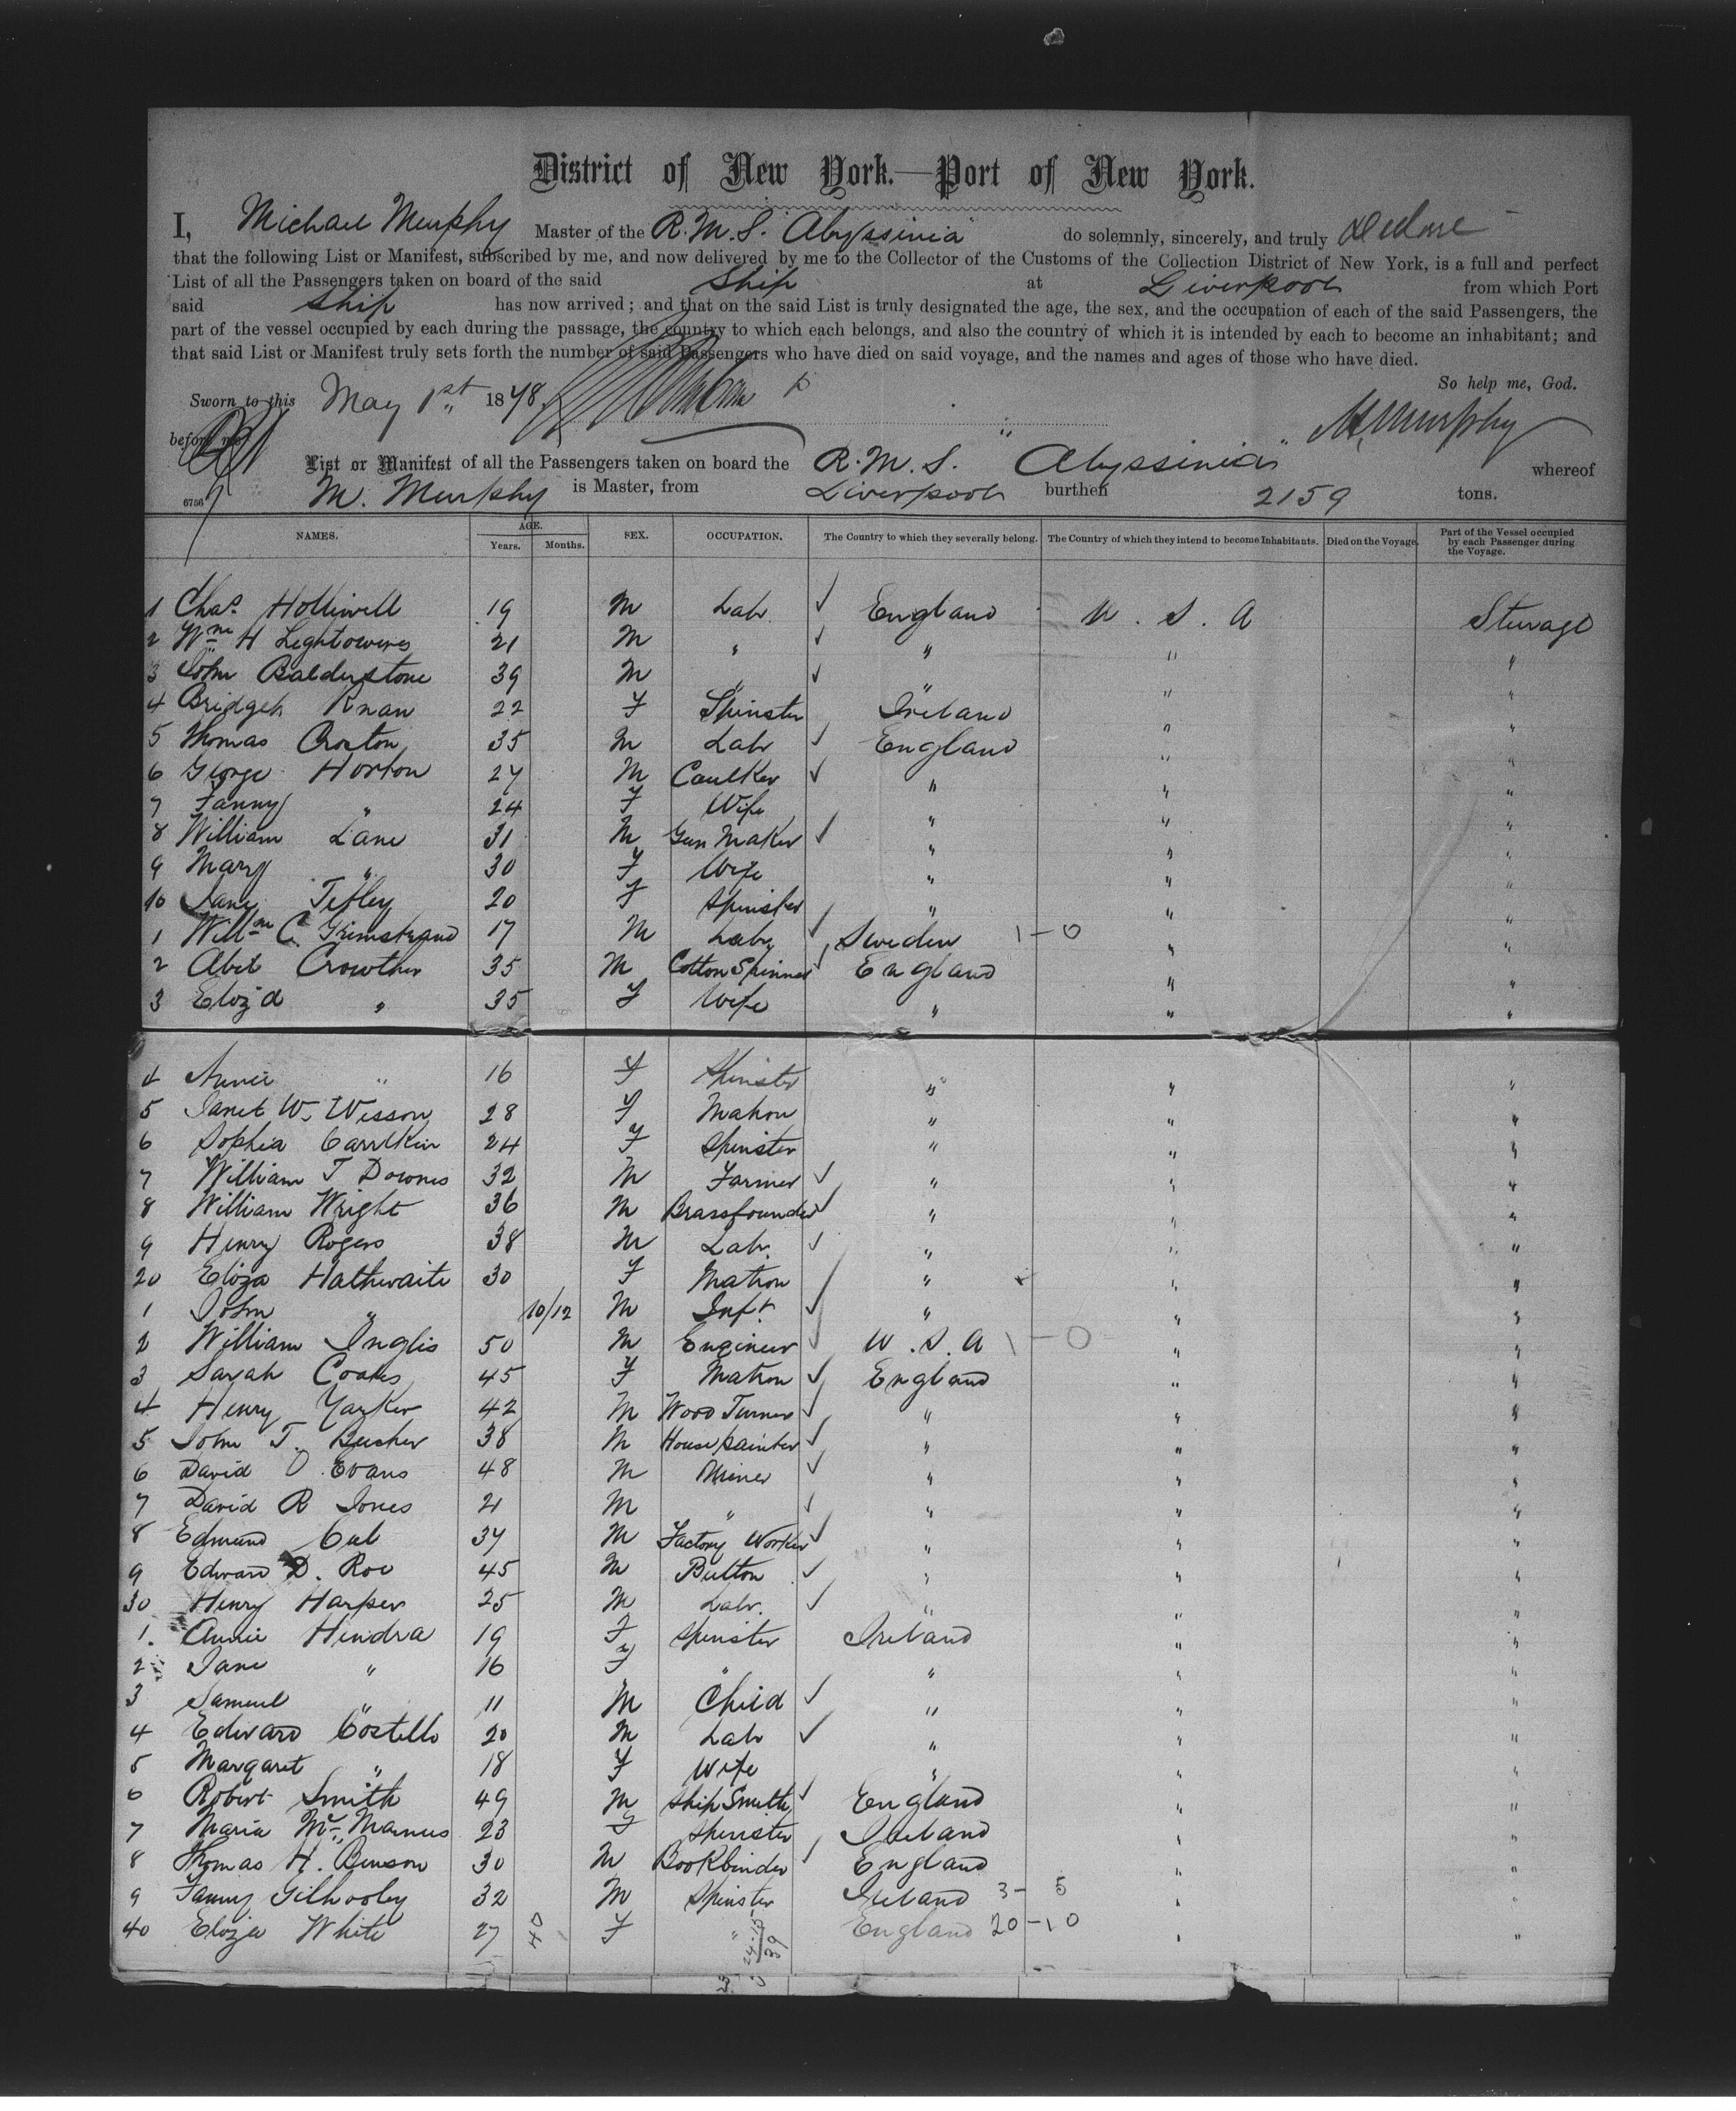 District of New York.—Port of New York.
I, Michael Murphy Master of the R.M.S. "Abyssinia" do solemnly, sincerely, and truly declare
that the following List or Manifest, subscribed by me, and now delivered by me to the Collector of the Customs of the Collection District of New York, is a full and perfect
List of all the Passengers taken on board of the said Ship at Liverpool from which Port
said Ship has now arrived; and that on the said List is truly designated the age, the sex, and the occupation of each of the said Passengers, the
part of the vessel occupied by each during the passage, the country to which each belongs, and also the country of which it is intended by each to become an inhabitant; and
that said List or Manifest truly sets forth the number of said Passengers who have died on said voyage, and the names and ages of those who have died.
So help me, God.
Sworn to this May 1st 1878
before me M. Murphy
List or Manifest of all the Passengers taken on board the R.M.S. "Abyssinia" whereof
6756 M. Murphy is Master, from Liverpool burthen 2159 tons.
NAMES. AGE. Years. Months. SEX. OCCUPATION. The Country to which they severally belong. The Country of which they intend to become Inhabitants. Died on the Voyage. Part of the Vessel occupied by each Passenger during the Voyage.
1 Chas. Holliwell 19 M Labr ✓ England U.S.A Steerage
2 Wm H Lightowers 21 M " ✓ " " "
3 John Balderstone 39 M " ✓ " " "
4 Bridget 22 F Spinster Ireland " "
5 Thomas Croxton 35 M Labr ✓ England " "
6 George Horton 27 M Caulker ✓ " " "
7 Fanny " 24 F Wife " " "
8 William Lane 31 M Gun Maker ✓ " " "
9 Mary " 30 F Wife " " "
10 Jane Tetley 20 F Spinster " " "
1 Willm C. Grimstrand 17 M Labr ✓ Sweden 1-0 " "
2 Abel Crowther 35 M Cotton Spinner ✓ England " "
3 Eliz'd " 35 F Wife " " "
4 Annie " 16 F Spinster " " "
5 Janet W. Wisson 28 F Matron " " "
6 Sophia 24 F Spinster " " "
7 William T Downes 32 M Farmer ✓ " " "
8 William Wright 36 M Brassfounder ✓ " " "
9 Henry Rogers 38 M Labr. ✓ " " "
20 Eliza Hathwaite 30 F Matron " " "
1 John " 10/12 M Inft ✓ " " "
2 William Inglis 50 M Engineer ✓ U.S.A 1-0 " "
3 Sarah Coates 45 F Matron ✓ England " "
4 Henry Yarker 42 M Wood Turner ✓ " " "
5 John T. Busher 38 M House painter ✓ " " "
6 David O Evans 48 M Miner ✓ " " "
7 David R Jones 21 M " ✓ " " "
8 Edmund 37 M Factory Worker ✓ " " "
9 Edward D. Roe 45 M Button ✓ " " "
30 Henry Harper 25 M Labr. ✓ " " "
1. Annie Hindra 19 F Spinster Ireland " "
2 Jane " 16 F " " " "
3 Samuel " 11 M Child ✓ " " "
4 Edward Costello 20 M Labr ✓ " " "
5 Margaret " 18 F Wife " " "
6 Robert Smith 49 M Ship Smith ✓ England " "
7 Maria McManus 23 F Spinster Ireland " "
8 Thomas H. Benson 30 M Bookbinder ✓ England " "
9 Fanny Gilhooley 32 M Spinster Ireland 3-5 " "
40 Eliza White 27 40 F " England 20-10 " "
24-15
39